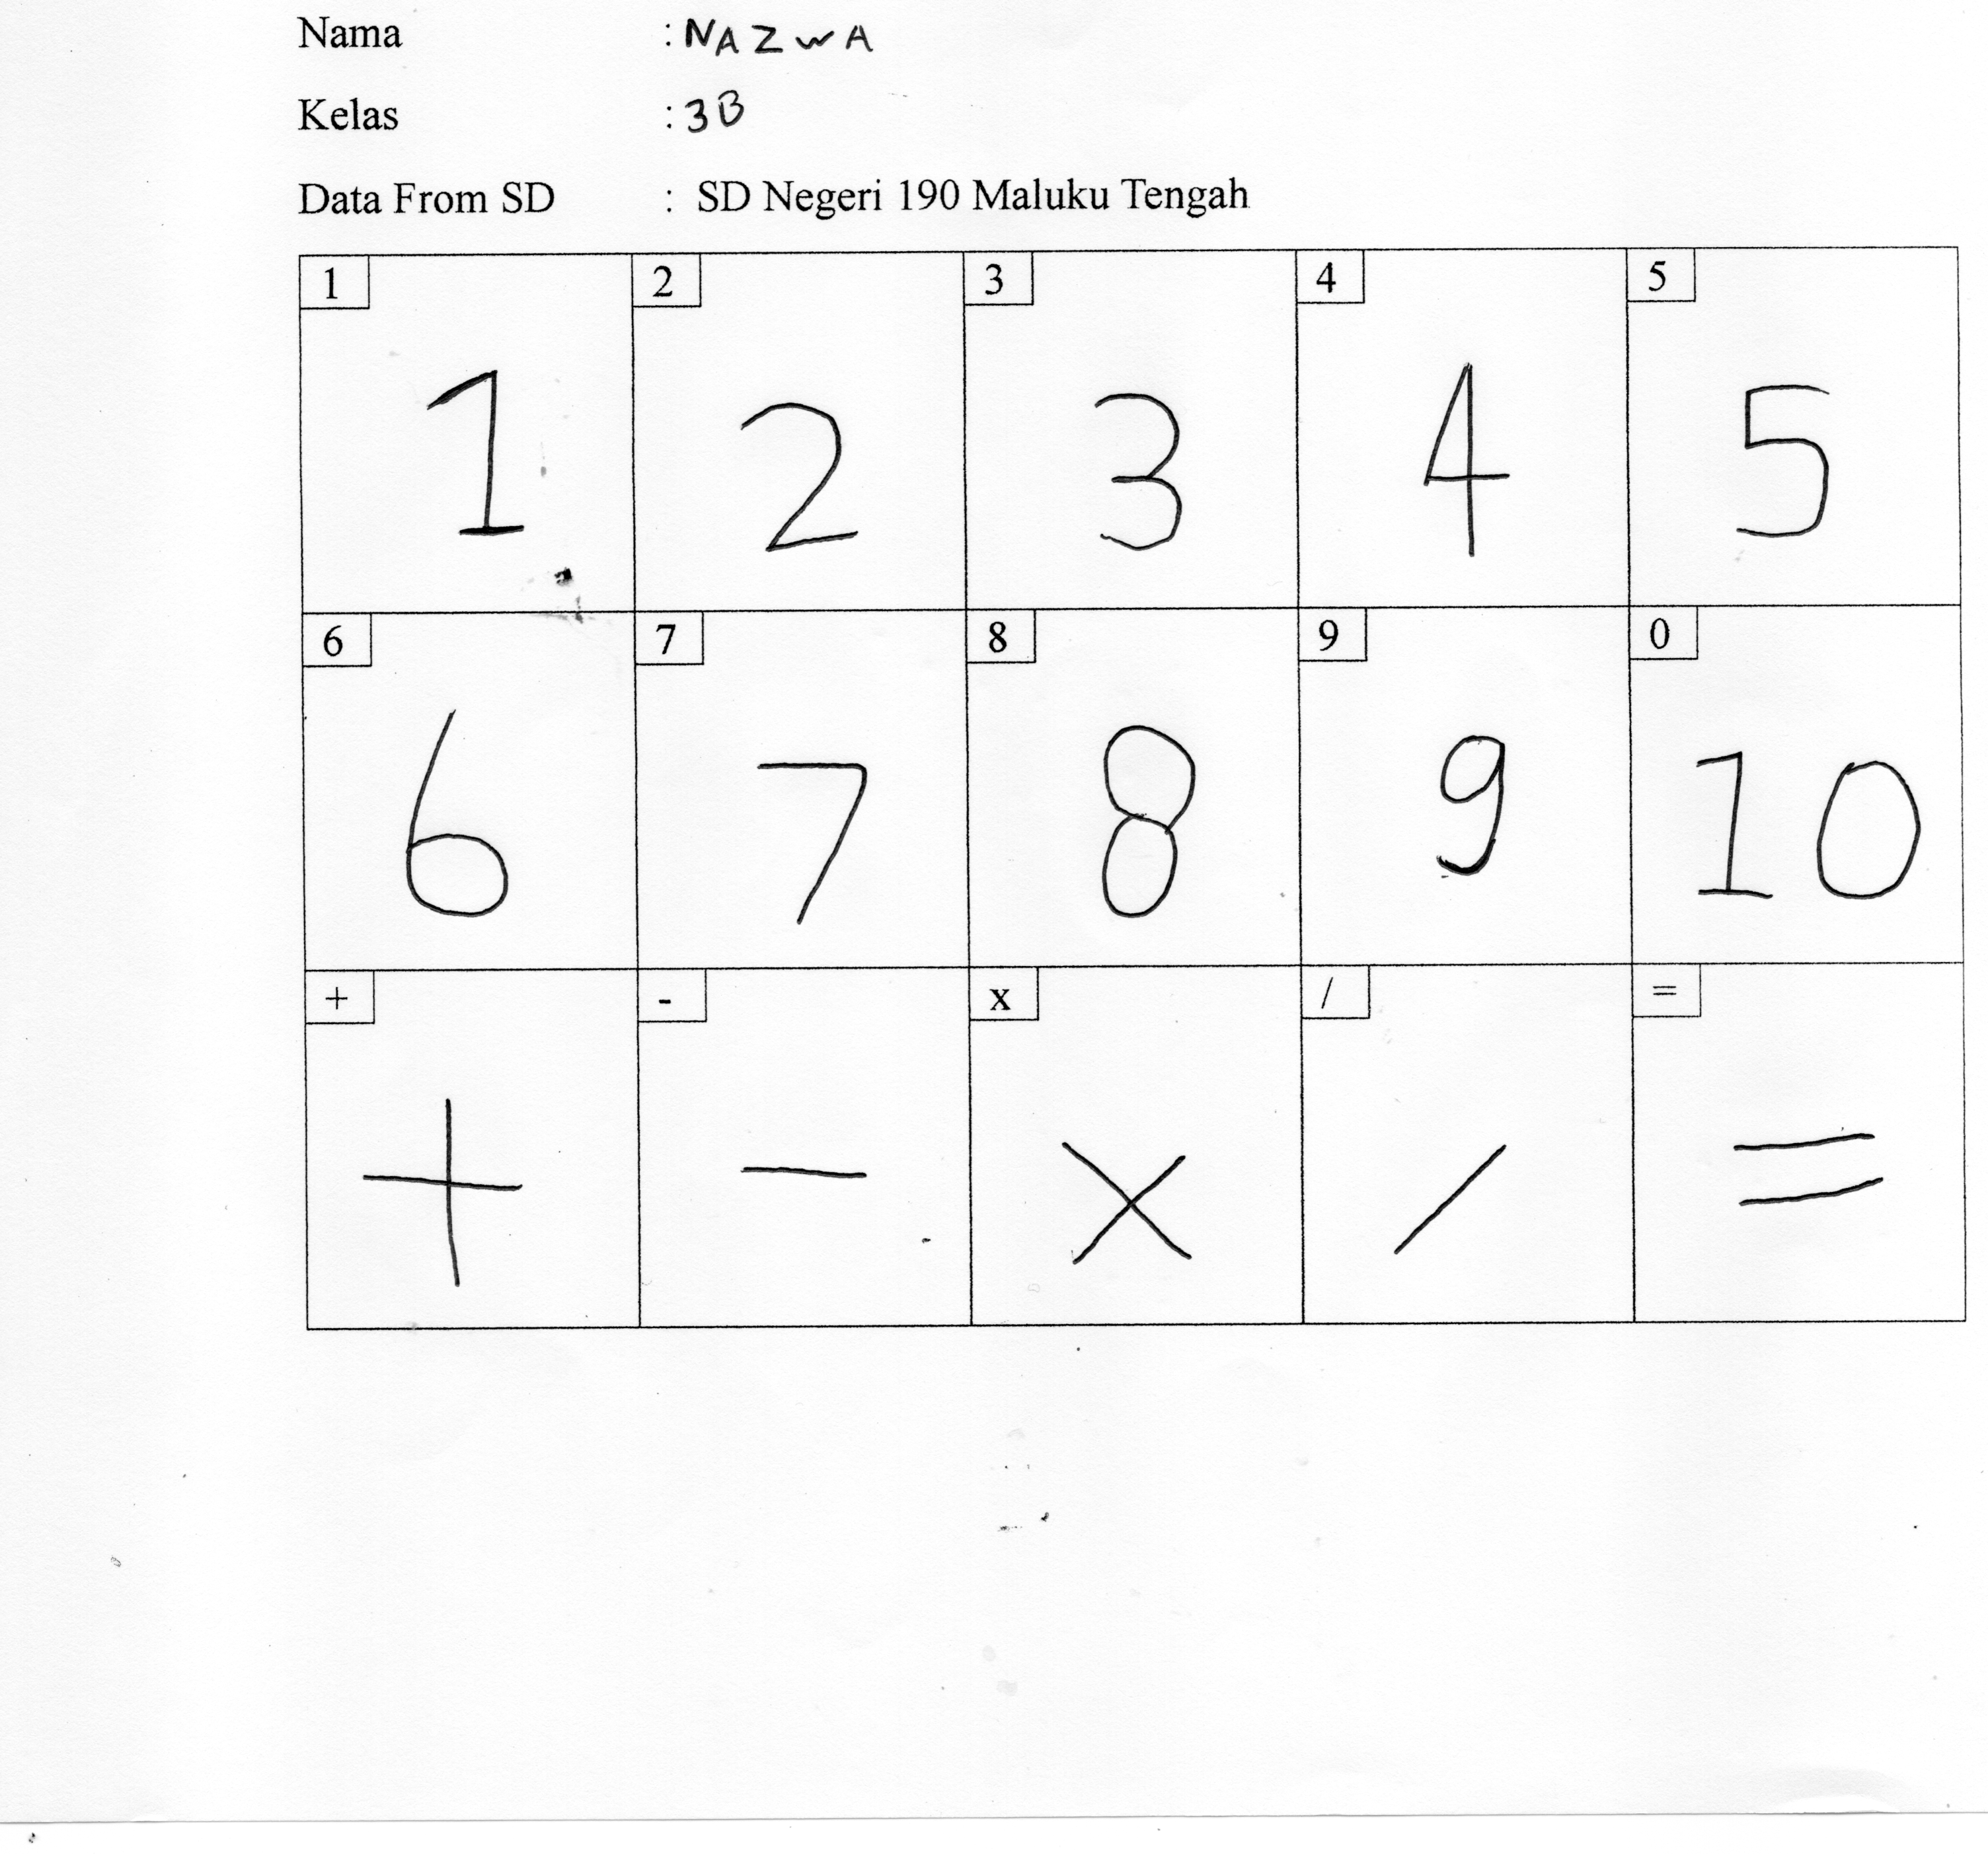 Nama : NAZWA
Kelas : 3B
Data From SD : SD Negeri 190 Maluku Tengah
1 2 3 4 5
1 2 3 4 5
6 7 8 9 0
6 7 8 9 10
+ - x / =
+ - × / =